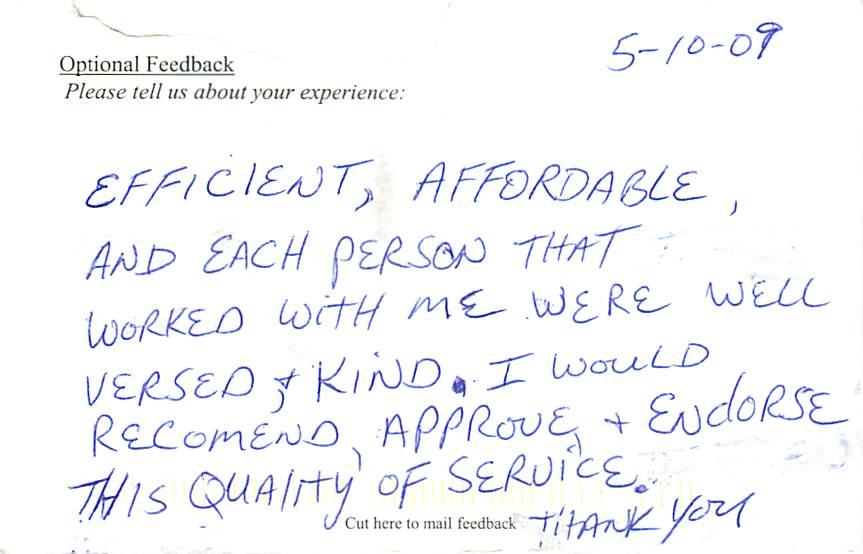 5-10-09
Optional Feedback
Please tell us about your experience:
EFFICIENT, AFFORDABLE,
AND EACH PERSON THAT
WORKED WITH ME WERE WELL
VERSED + KIND. I WOULD
RECOMEND, APPROVE, + ENDORSE
THIS QUALITY OF SERVICE.
Cut here to mail feedback THANK YOU